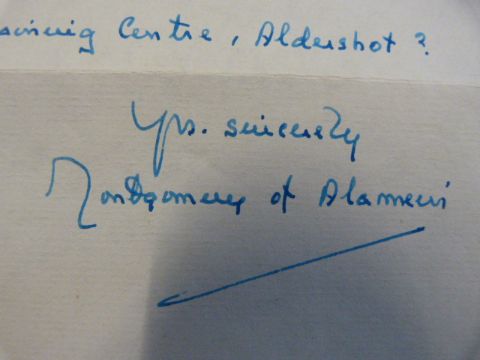 aining Centre, Aldershot?
Yrs. sincerely
Montgomery of Alamein